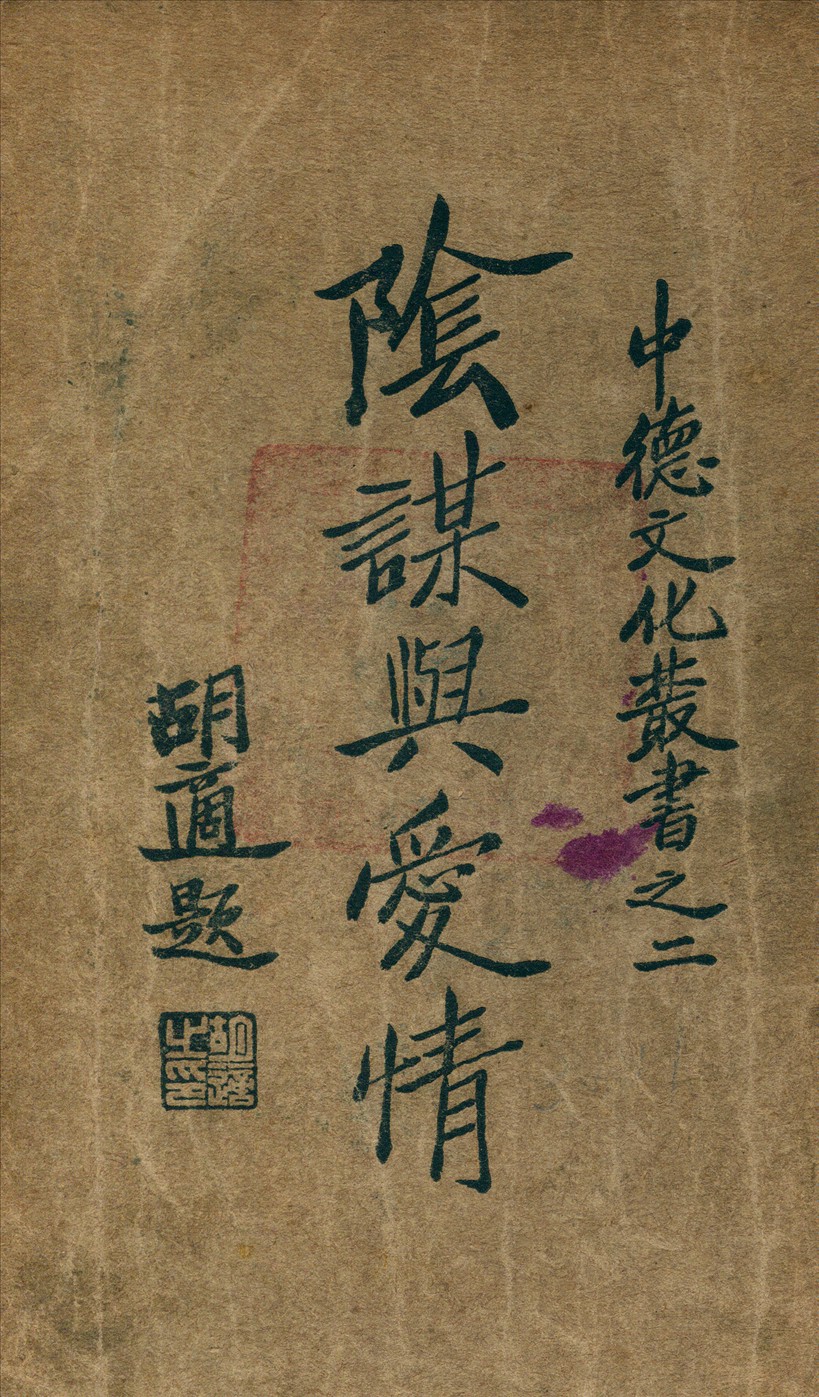 中德文化叢書之二
陰謀與愛情
胡適題
胡適之印